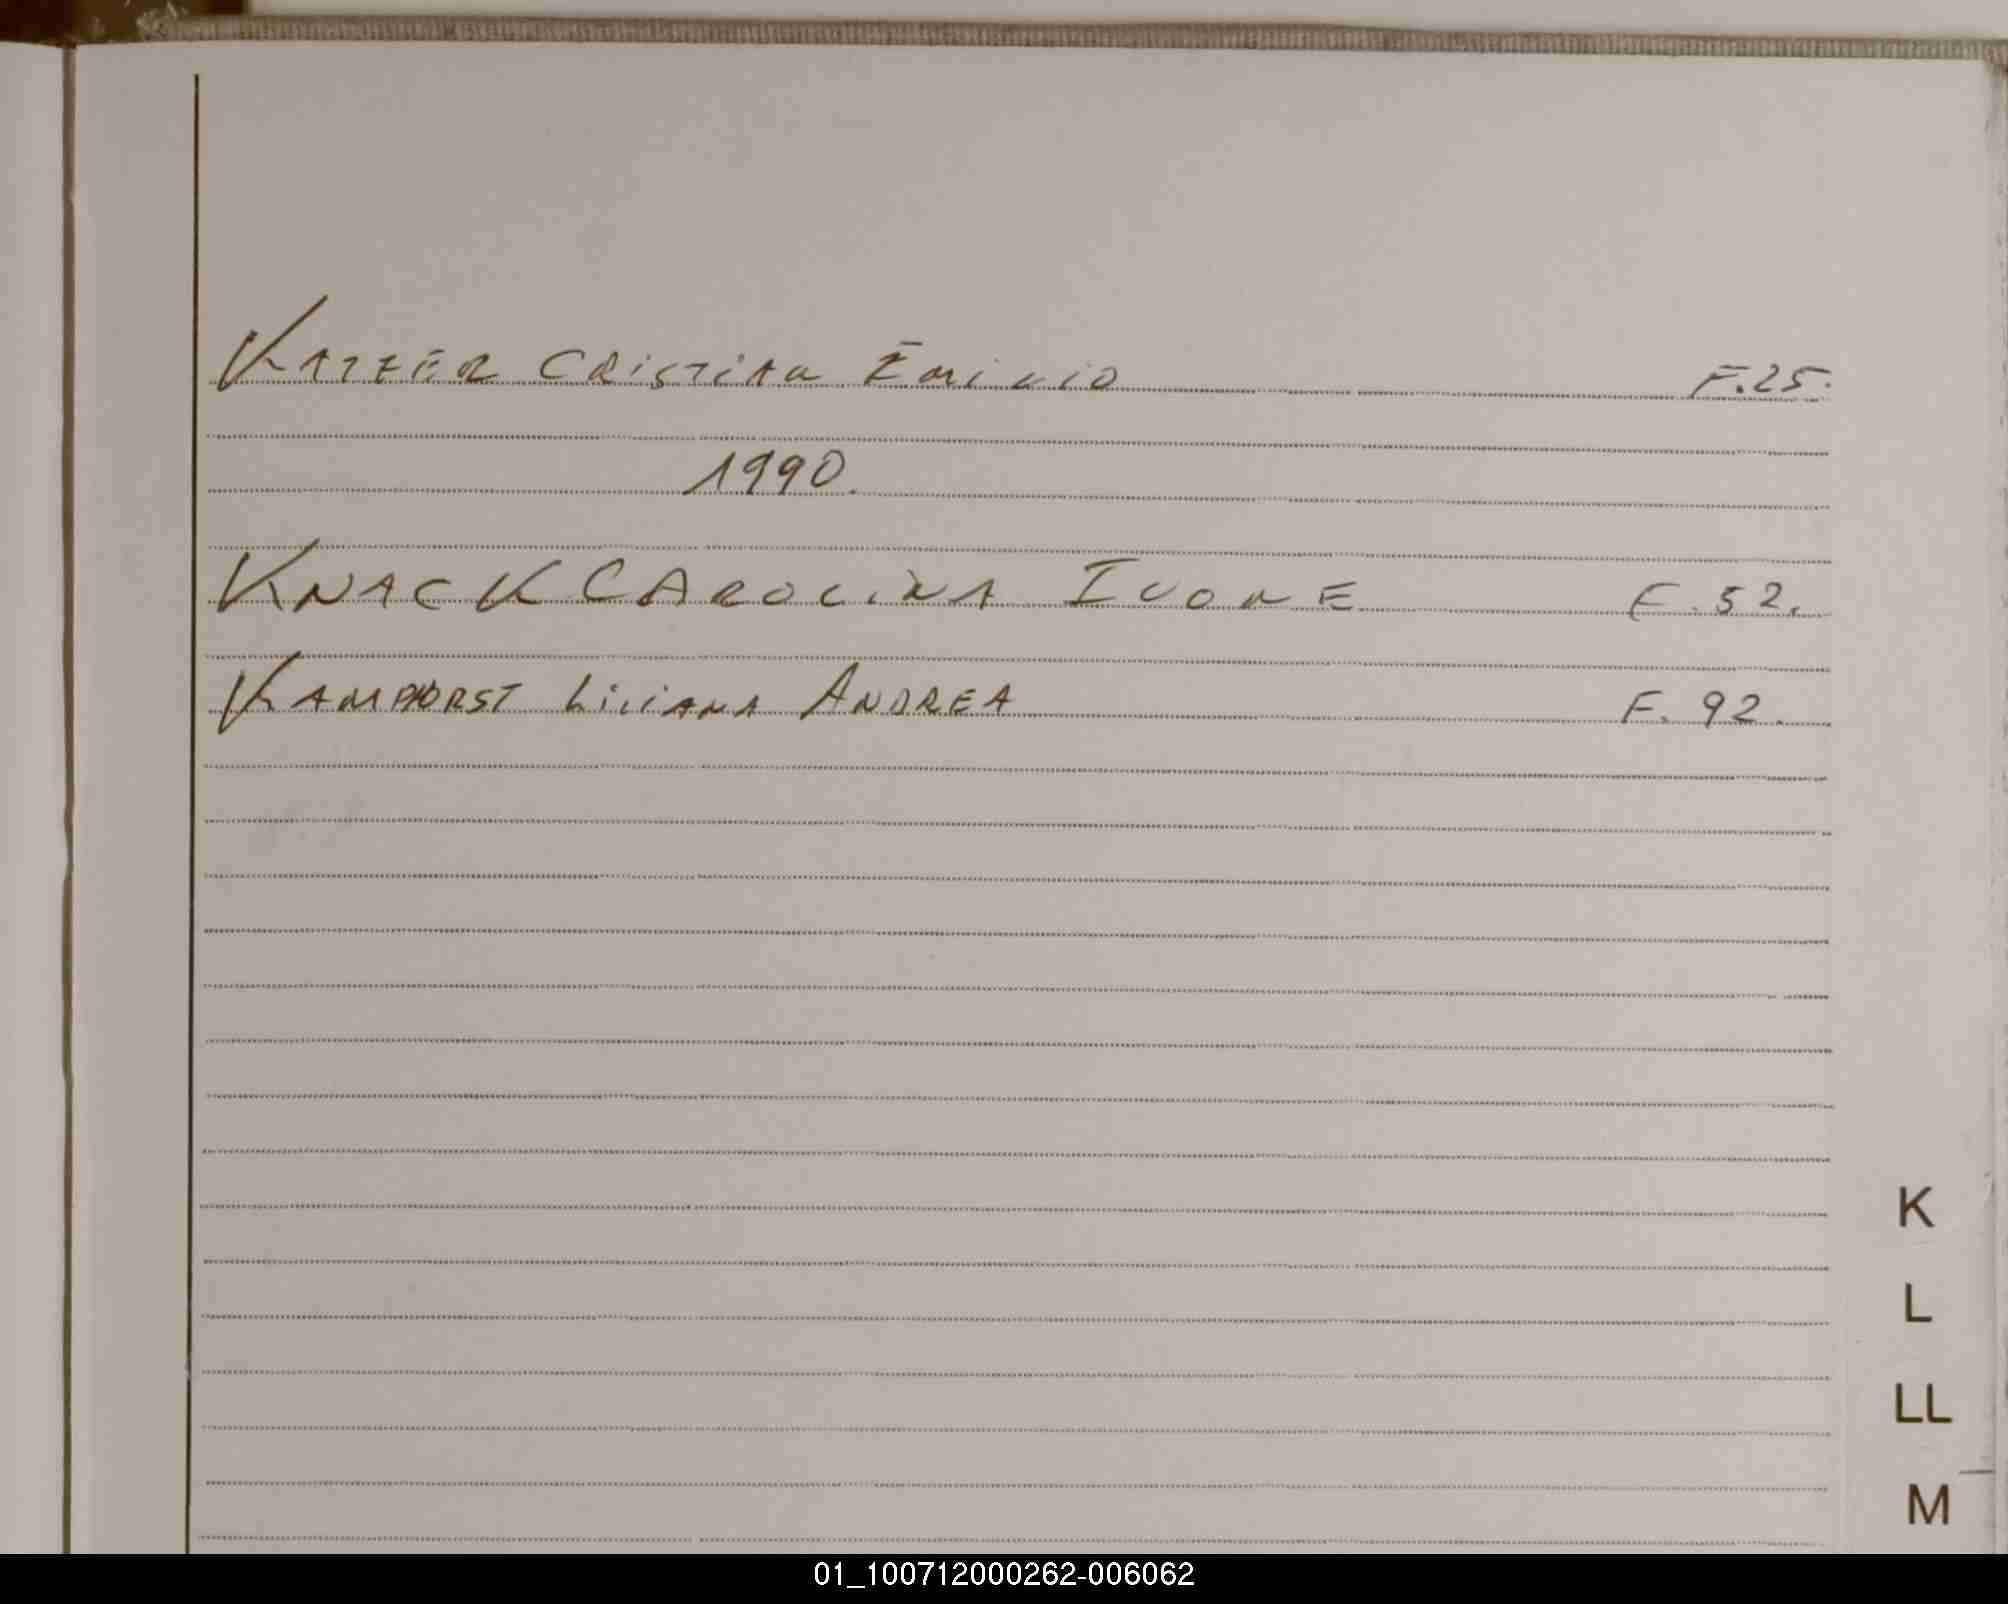 KATZER CRISTINA EMILIO F.25.
1990.
KNACK CAROLINA IVONE F.52.
KAMPHORST LILIANA ANDREA F.92.
K
L
LL
M
01_100712000262-006062